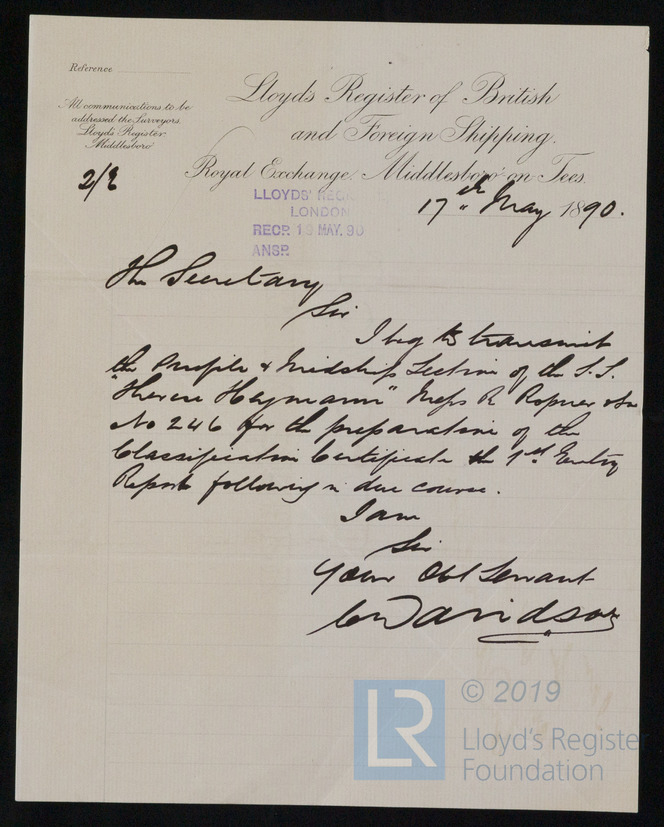 Reference
All communications to be
addressed the Surveyors,
Lloyd's Register
Middlesboro'
Lloyd's Register of British
and Foreign Shipping.
Royal Exchange. Middlesboro'-on-Tees.
2/2
LLOYDS' REG
LONDON
RECD. 1 MAY. 90
ANSD.
17th May 1890.
The Secretary
Sir
I beg to transmit
the Profile & Midship Section of the S.S.
"Therese Heymann" Messrs R Ropner & Son
No 246 for the preparation of the
Classification Certificate the 1st Entry
Reports following in due course.
I am
Sir
Your Obt Servant
Davidson
LR
© 2019
Lloyd's Register
Foundation